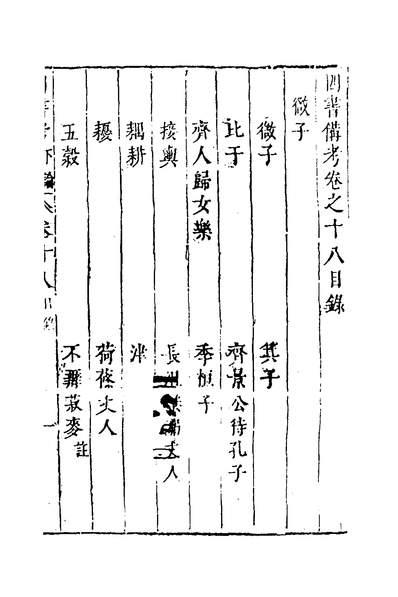 四書備考卷之十八目錄
微子
微子 箕子
比干 齊景公待孔子
齊人歸女樂 季桓子
接輿 長沮 丈人
耦耕 津
耰 荷蓧丈人
五穀 不辨菽麥註
卷十八目錄